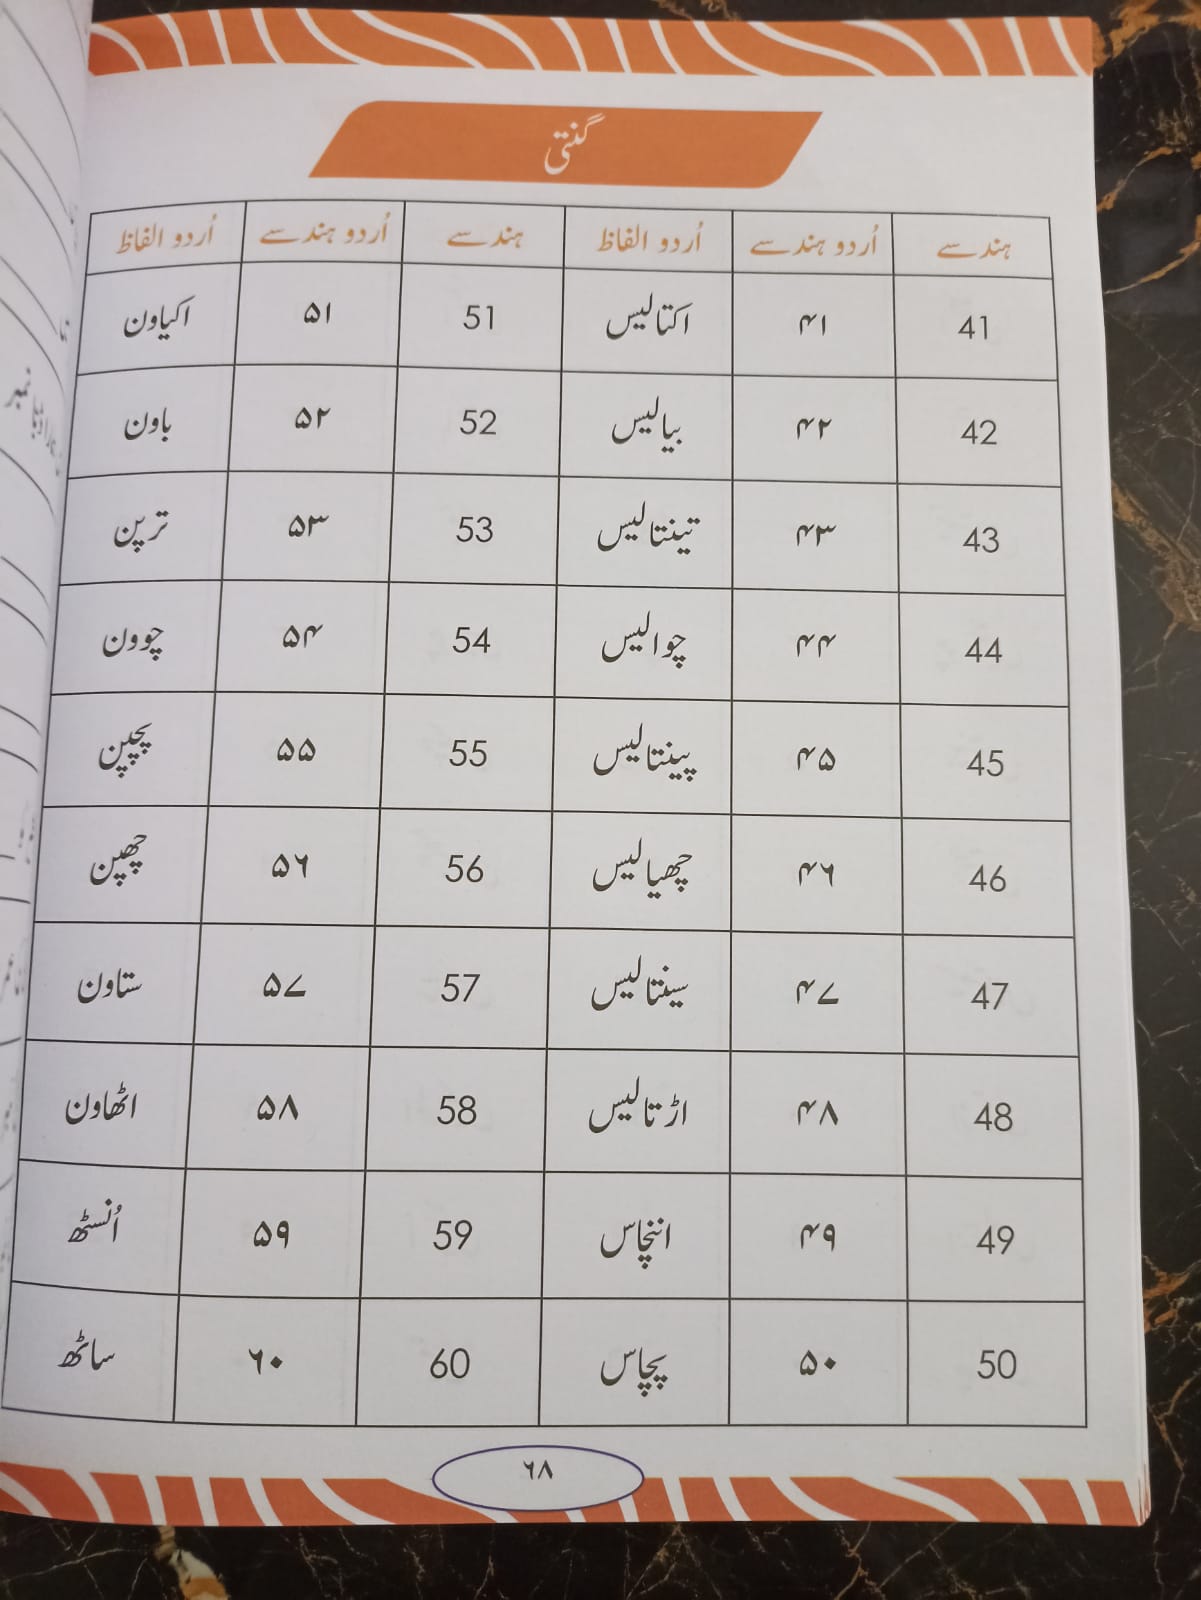 گنتی
ہندسے اُردو ہندسے اُردو الفاظ ہندسے اُردو ہندسے اُردو الفاظ
41 ۴۱ اکتالیس 51 ۵۱ اکیاون
42 ۴۲ بیالیس 52 ۵۲ باون
43 ۴۳ تینتالیس 53 ۵۳ ترپن
44 ۴۴ چوالیس 54 ۵۴ چوون
45 ۴۵ پینتالیس 55 ۵۵ پچپن
46 ۴۶ چھیالیس 56 ۵۶ چھپن
47 ۴۷ سینتالیس 57 ۵۷ ستاون
48 ۴۸ اڑتالیس 58 ۵۸ اٹھاون
49 ۴۹ اننچاس 59 ۵۹ اُنسٹھ
50 ۵۰ پچاس 60 ۶۰ ساٹھ
۶۸
نمبر